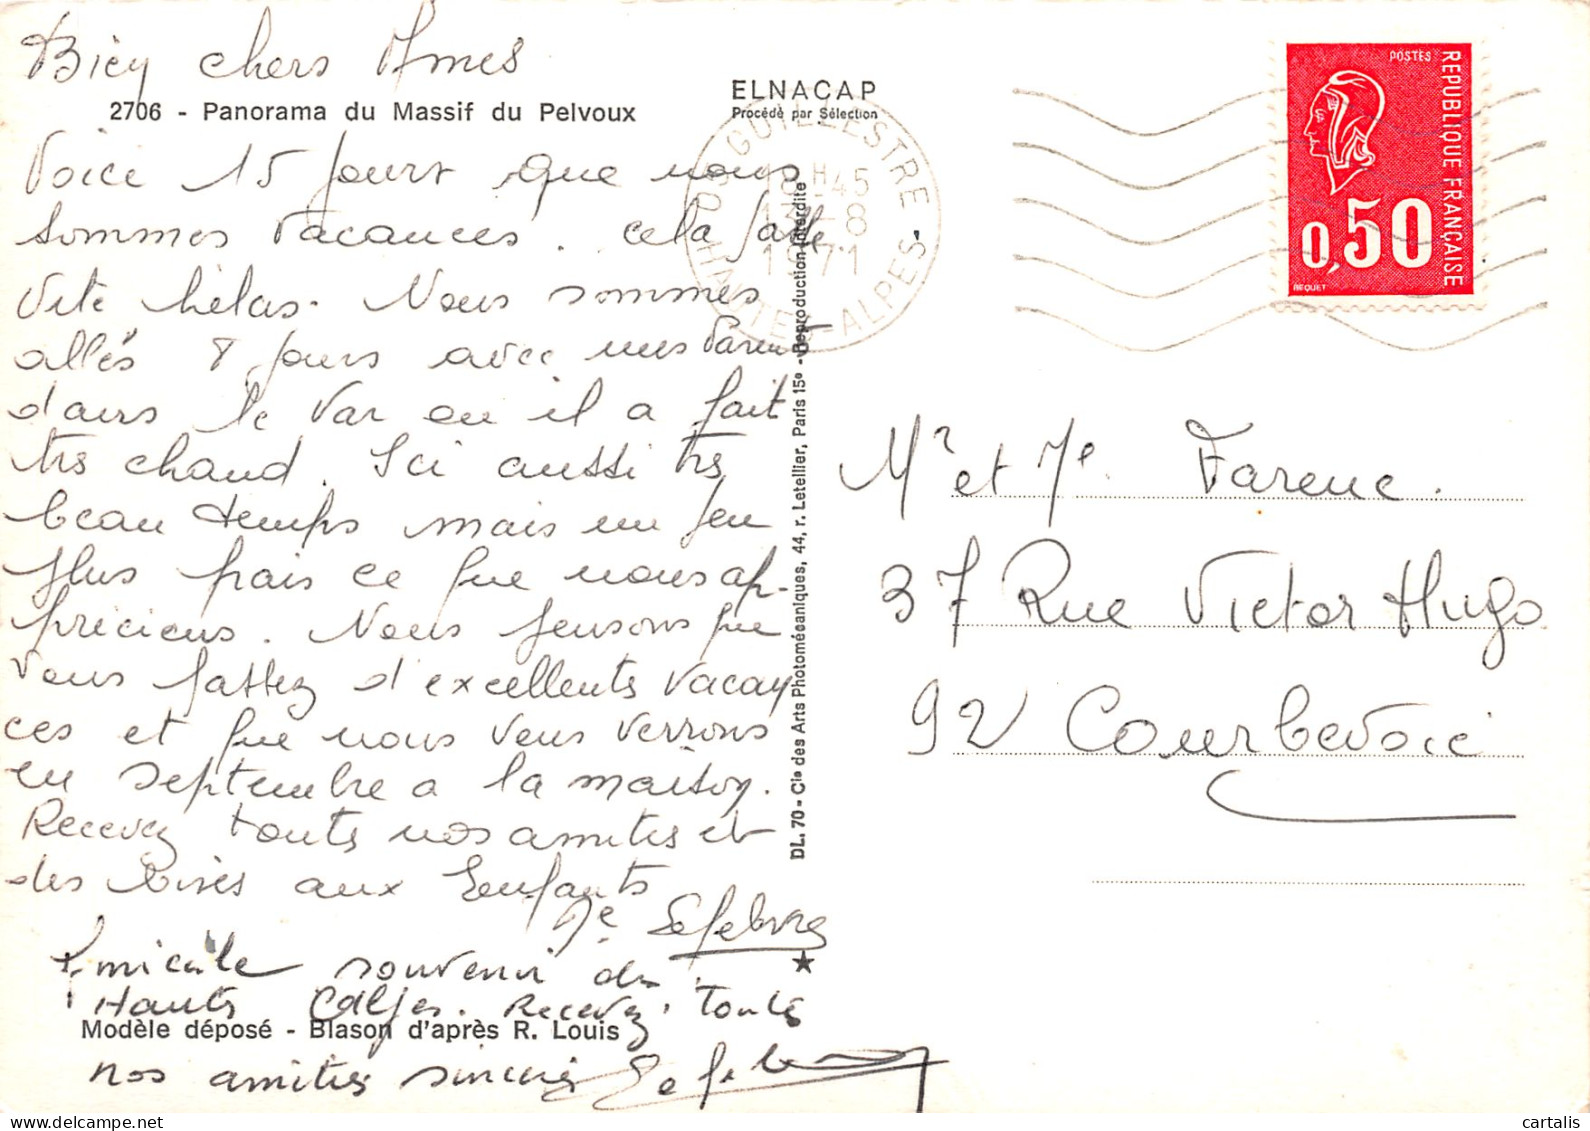 Bien chers Amis
2706 - Panorama du Massif du Pelvoux
ELNACAP
Procédé par Sélection
Voici 15 jours que nous
sommes vacances. cela passe
vite hélas. Nous sommes
allés 8 jours avec mes Parents
dans le Var ou il a fait
très chaud. Ici aussi très
beau temps mais un peu
plus frais ce que nous ap-
précions. Nous pensons que
vous passez d'excellents vacan
ces et que nous vous verrons
en septembre a la maison.
Recevez toutes nos amities et
des bises aux Enfants
Lefebvre
Amicale souvenir des
Hauts Calpes. Recevez toutes
Modèle déposé - Blason d'après R. Louis
nos amities sincères Lefebvre
DL. 70 - Cie des Arts Photomécaniques, 44, r. Letellier, Paris 15e - Reproduction interdite
05 GUILLESTRE
18H45
13-8
1971
HAUTES-ALPES
POSTES
REPUBLIQUE FRANÇAISE
0,50
BEQUET
Mr et Me Farenc.
37 Rue Victor Hugo
92 Courbevoie
delcampe.net
cartalis